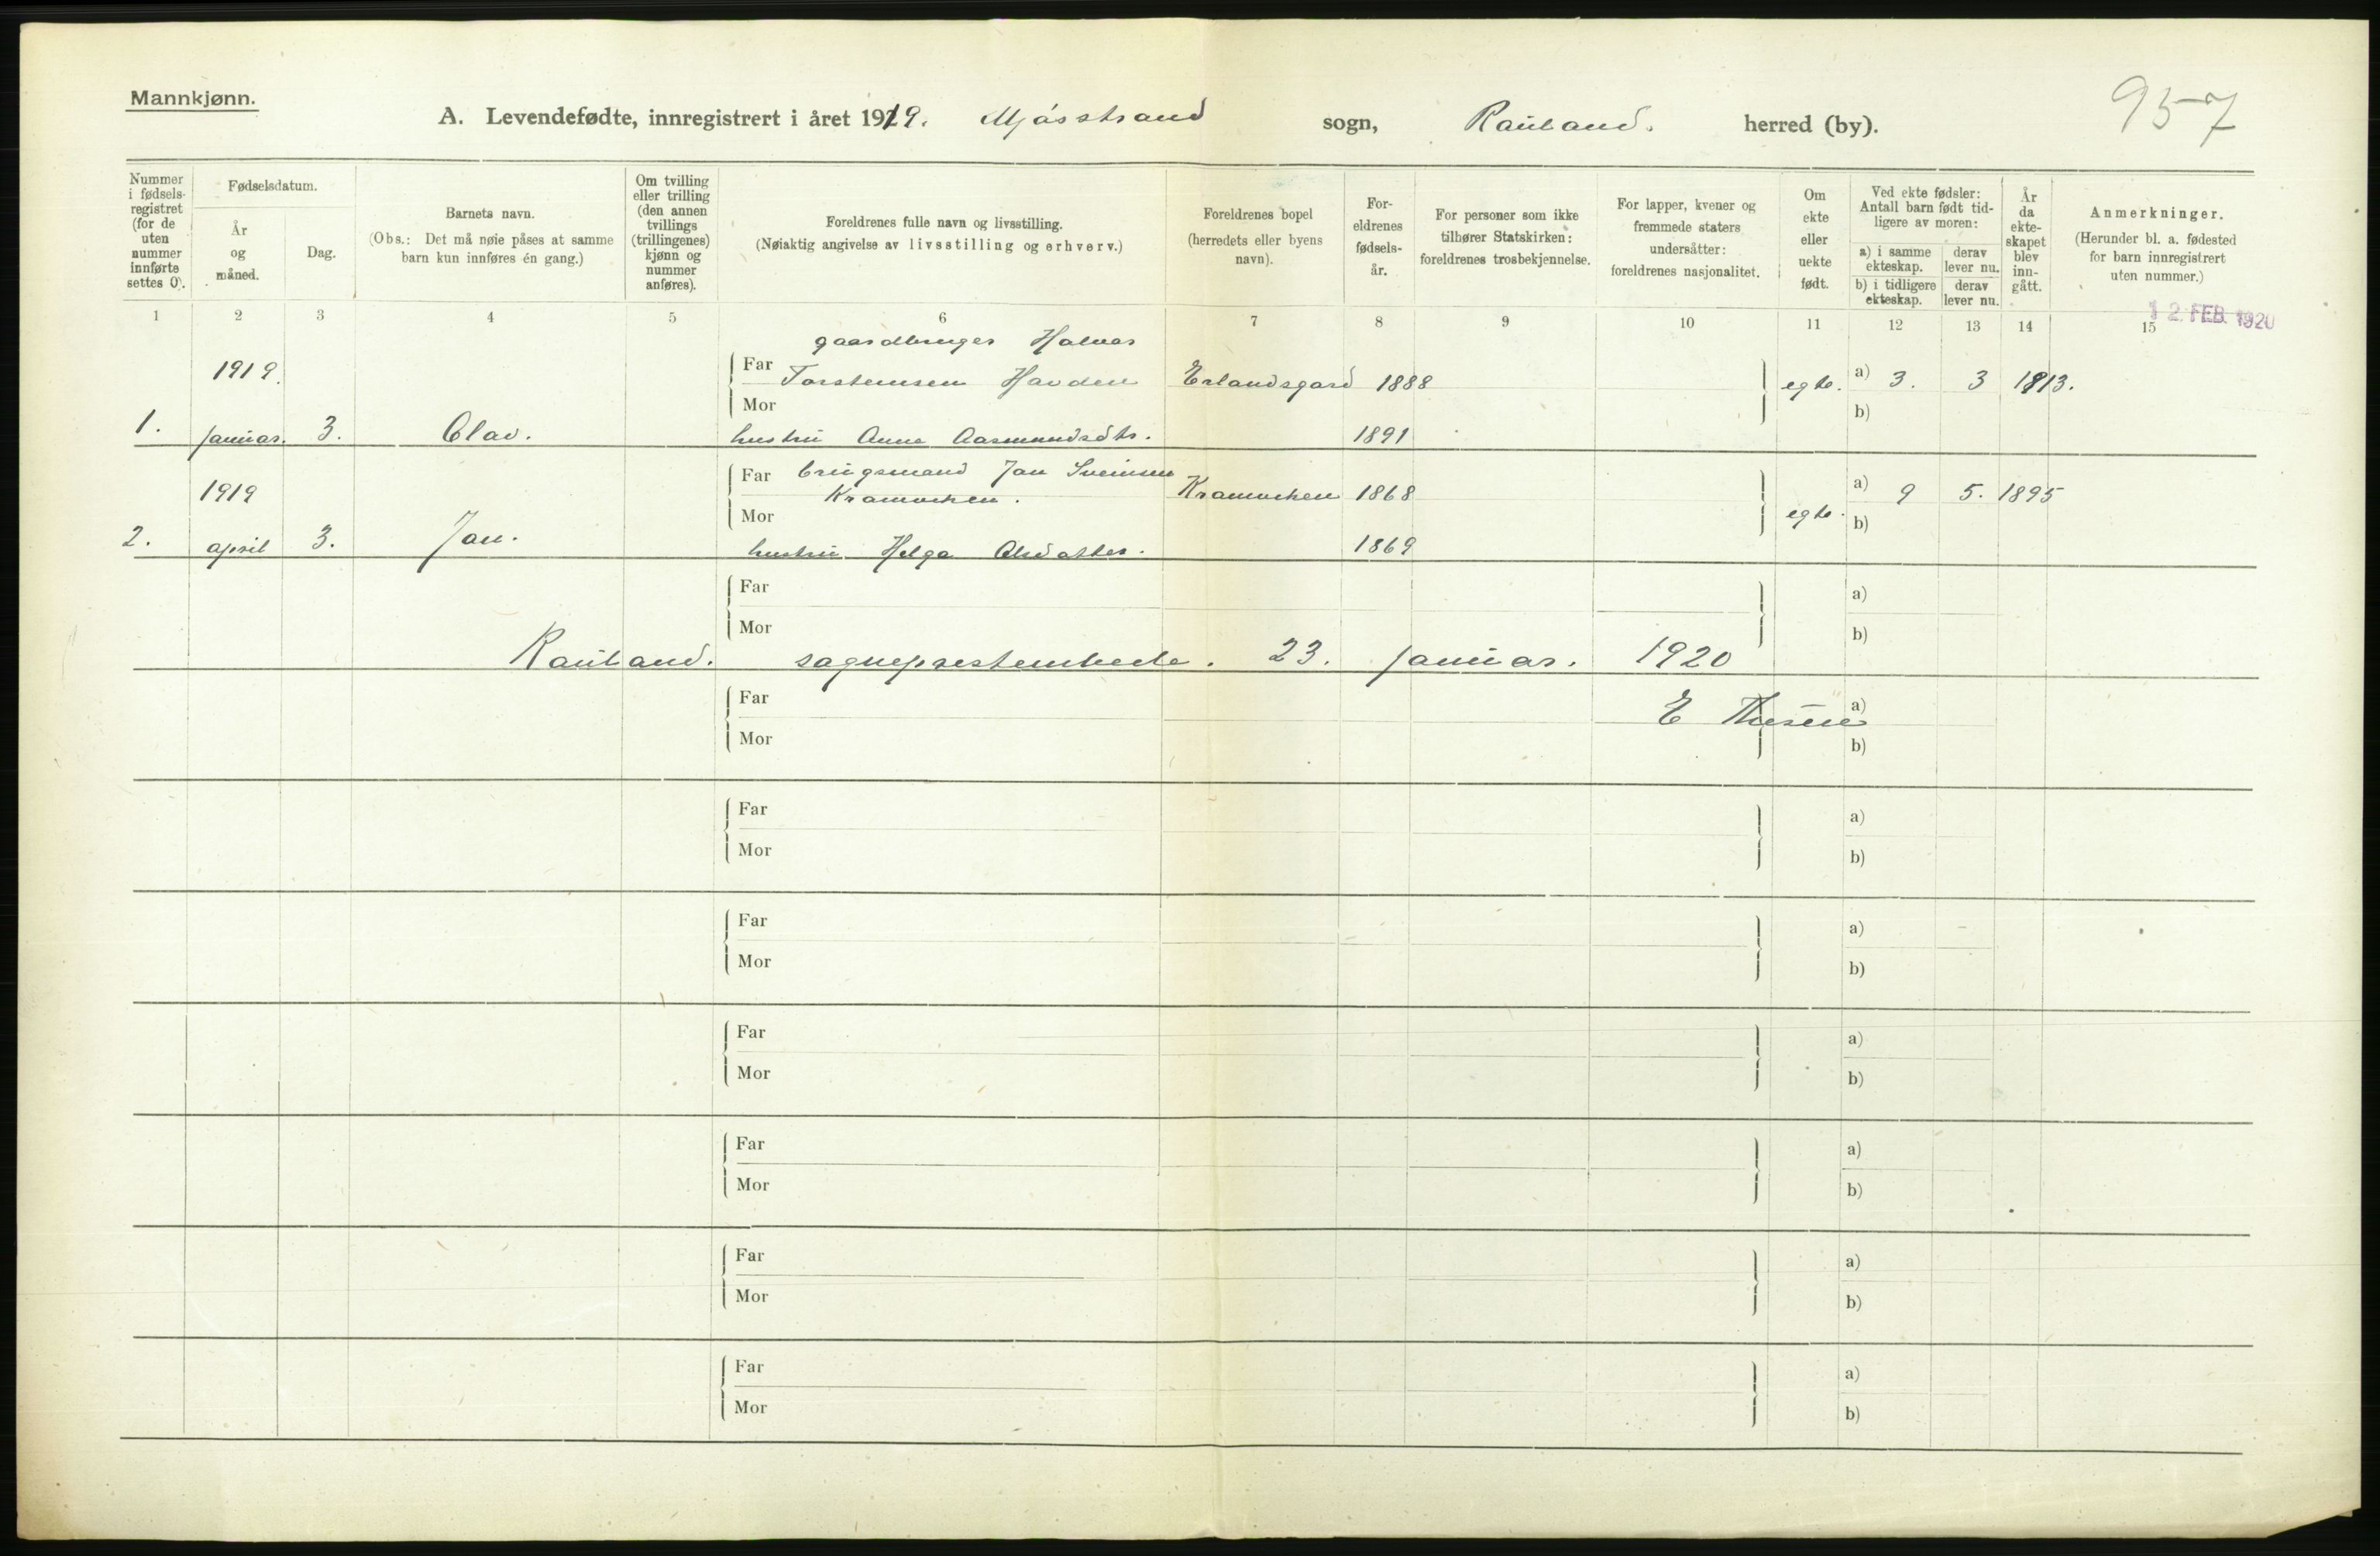 Mannkjønn.
957
A. Levendefødte, innregistrert i året 1919. Mjøsstrand sogn, Rauland. herred (by).
Nummer i fødsels-registret (for de uten nummer innførte settes 0).
Fødselsdatum.
År og måned.
Dag.
Barnets navn.
(Obs.: Det må nøie påses at samme barn kun innføres én gang.)
Om tvilling eller trilling (den annen tvillings (trillingenes) kjønn og nummer anføres).
Foreldrenes fulle navn og livsstilling.
(Nøiaktig angivelse av livsstilling og erhverv.)
Foreldrenes bopel (herredets eller byens navn).
For-eldrenes fødsels-år.
For personer som ikke tilhører Statskirken: foreldrenes trosbekjennelse.
For lapper, kvener og fremmede staters undersåtter: foreldrenes nasjonalitet.
Om ekte eller uekte født.
Ved ekte fødsler: Antall barn født tid-ligere av moren:
a) i samme ekteskap.
derav lever nu.
b) i tidligere ekteskap.
derav lever nu.
År da ekte-skapet blev inn-gått.
Anmerkninger.
(Herunder bl. a. fødested for barn innregistrert uten nummer.)
1 2 3 4 5 6 7 8 9 10 11 12 13 14 15
12 FEB. 1920
gaardbruger Halvor
1919. Far Torsteinsen Hovden Erlandsgard 1888 egte. a) 3. 3 1913.
Mor b)
1. januar. 3. Olav. hustru Anne Aasmundsdtr. 1891
Far brugsmand Jon Sveinsen
1919 Kromviken. Kromviken 1868 egte. a) 9 5. 1895
Mor b)
2. april 3. Jon. hustru Helga Olsdatter. 1869
Far a)
Mor b)
Rauland. sogneprestembede. 23. januar. 1920
Far E a)
Mor b)
Far a)
Mor b)
Far a)
Mor b)
Far a)
Mor b)
Far a)
Mor b)
Far a)
Mor b)
Far a)
Mor b)